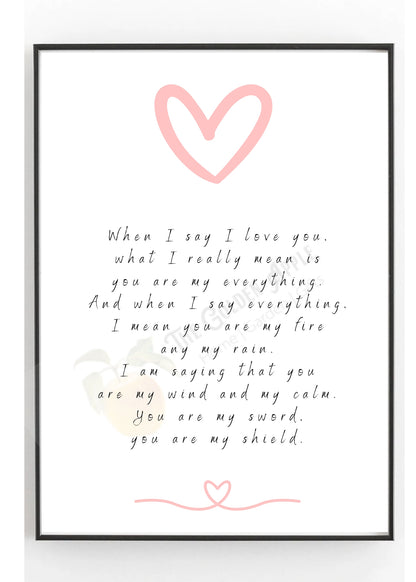 When I say I love you,
what I really mean is
you are my everything.
And when I say everything,
I mean you are my fire
any my rain.
I am saying that you
are my wind and my calm.
You are my sword,
you are my shield.
The Golden Apple